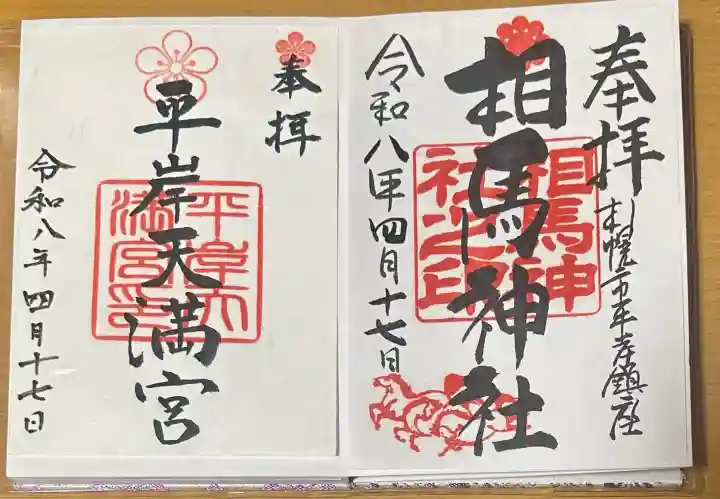 奉拝
札幌市平岸鎮座
相馬神社
相馬神社之印
令和八年四月十七日
奉拝
平岸天満宮
平岸天満宮印
令和八年四月十七日